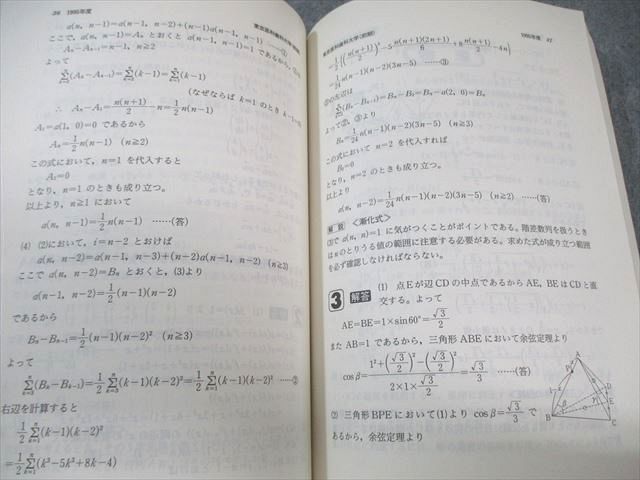 1995年度
a(n, n−1)=a(n−1, n−2)+(n−1)a(n−1, n−1) ……①
ここで, a(n, n−1)=Aₙ とおくと a(n−1, n−1)=1 であるから, ①は
Aₙ−Aₙ₋₁=n−1, n≧2
よって
Σ(Aₖ−Aₖ₋₁)=Σ(k−1)=Σ(k−1)
(なぜならば k=1 のとき k−1=0)
∴ Aₙ−A₁=n(n+1)/2−n=1/2 n(n−1)
A₁=a(1, 0)=0 であるから
Aₙ=1/2 n(n−1) (n≧2)
この式において, n=1 を代入すると
A₁=0
となり, n=1 のときも成り立つ。
以上より, n≧1 において
a(n, n−1)=1/2 n(n−1) ……(答)
(4) (2)において, i=n−2 とおけば
a(n, n−2)=a(n−1, n−3)+(n−2)a(n−1, n−2) (n≧3)
ここで a(n, n−2)=Bₙ とおくと, (3)より
a(n−1, n−2)=1/2 (n−1)(n−2)
であるから
Bₙ−Bₙ₋₁=1/2 (n−1)(n−2)² (n≧3)
よって
Σ(Bₖ−Bₖ₋₁)=1/2 Σ(k−1)(k−2)²=1/2 Σ(k−1)(k−2)² ……②
右辺を計算すると
1/2 Σ(k−1)(k−2)²
=1/2 Σ(k³−5k²+8k−4)
東京医科歯科大学(前期)
1995年度 47
=1/2{(n(n+1)/2)²−5 n(n+1)(2n+1)/6+8 n(n+1)/2−4n}
=1/24 n(n−1)(n−2)(3n−5) ……③
②の左辺は
Σ(Bₖ−Bₖ₋₁)=Bₙ−B₂=Bₙ−a(2, 0)=Bₙ
よって②, ③より
Bₙ=1/24 n(n−1)(n−2)(3n−5) (n≧3)
この式において n=2 を代入すれば
B₂=0
となり, n=2 のときも成り立つ。
以上より
a(n, n−2)=1/24 n(n−1)(n−2)(3n−5) (n≧2) ……(答)
解説 <漸化式>
(3)で a(n, n)=1 に気がつくことがポイントである。階差数列を扱うとき
はnのとりうる値の範囲に注意する必要がある。求めた式が成り立つ範囲
を必ず確認しなければならない。
3 解答 (1) 点Eが辺CDの中点であるからAE, BEはCDと直
交する。よって
AE=BE=1×sin60°=√3/2
また AB=1 であるから, 三角形 ABE において余弦定理より
cosβ=(1²+(√3/2)²−(√3/2)²)/(2×1×√3/2)=√3/3 ……(答)
(2) 三角形BPEにおいて(1)より cosβ=√3/3 で
あるから, 余弦定理より
A
P
1
D
E
B
C
β